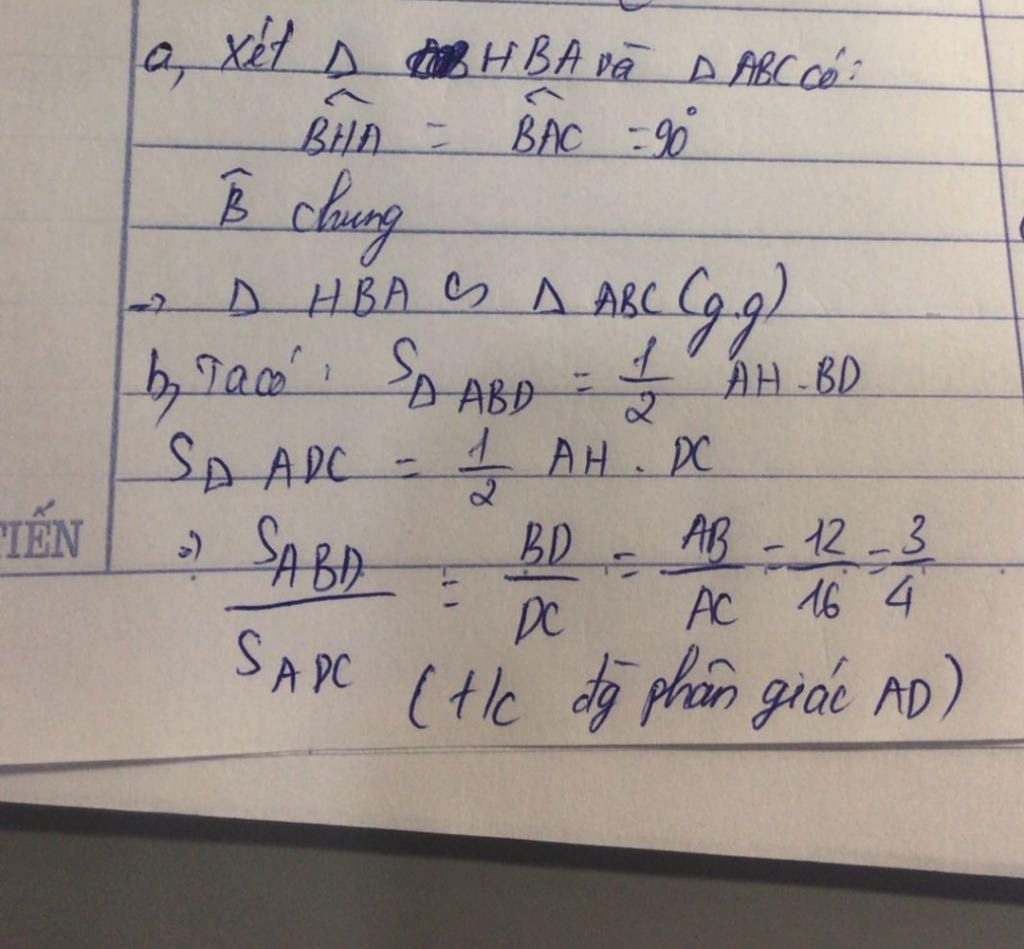 a, Xét Δ HBA và Δ ABC có:
\widehat{BHA} = \widehat{BAC} = 90°
\widehat{B} chung
→ Δ HBA ∽ Δ ABC (g.g)
b, Ta có: S_{Δ ABD} = \frac{1}{2} AH . BD
S_{Δ ADC} = \frac{1}{2} AH . DC
TIẾN
⇒ \frac{S_{ABD}}{S_{ADC}} = \frac{BD}{DC} = \frac{AB}{AC} = \frac{12}{16} = \frac{3}{4}
(t/c đg phân giác AD)